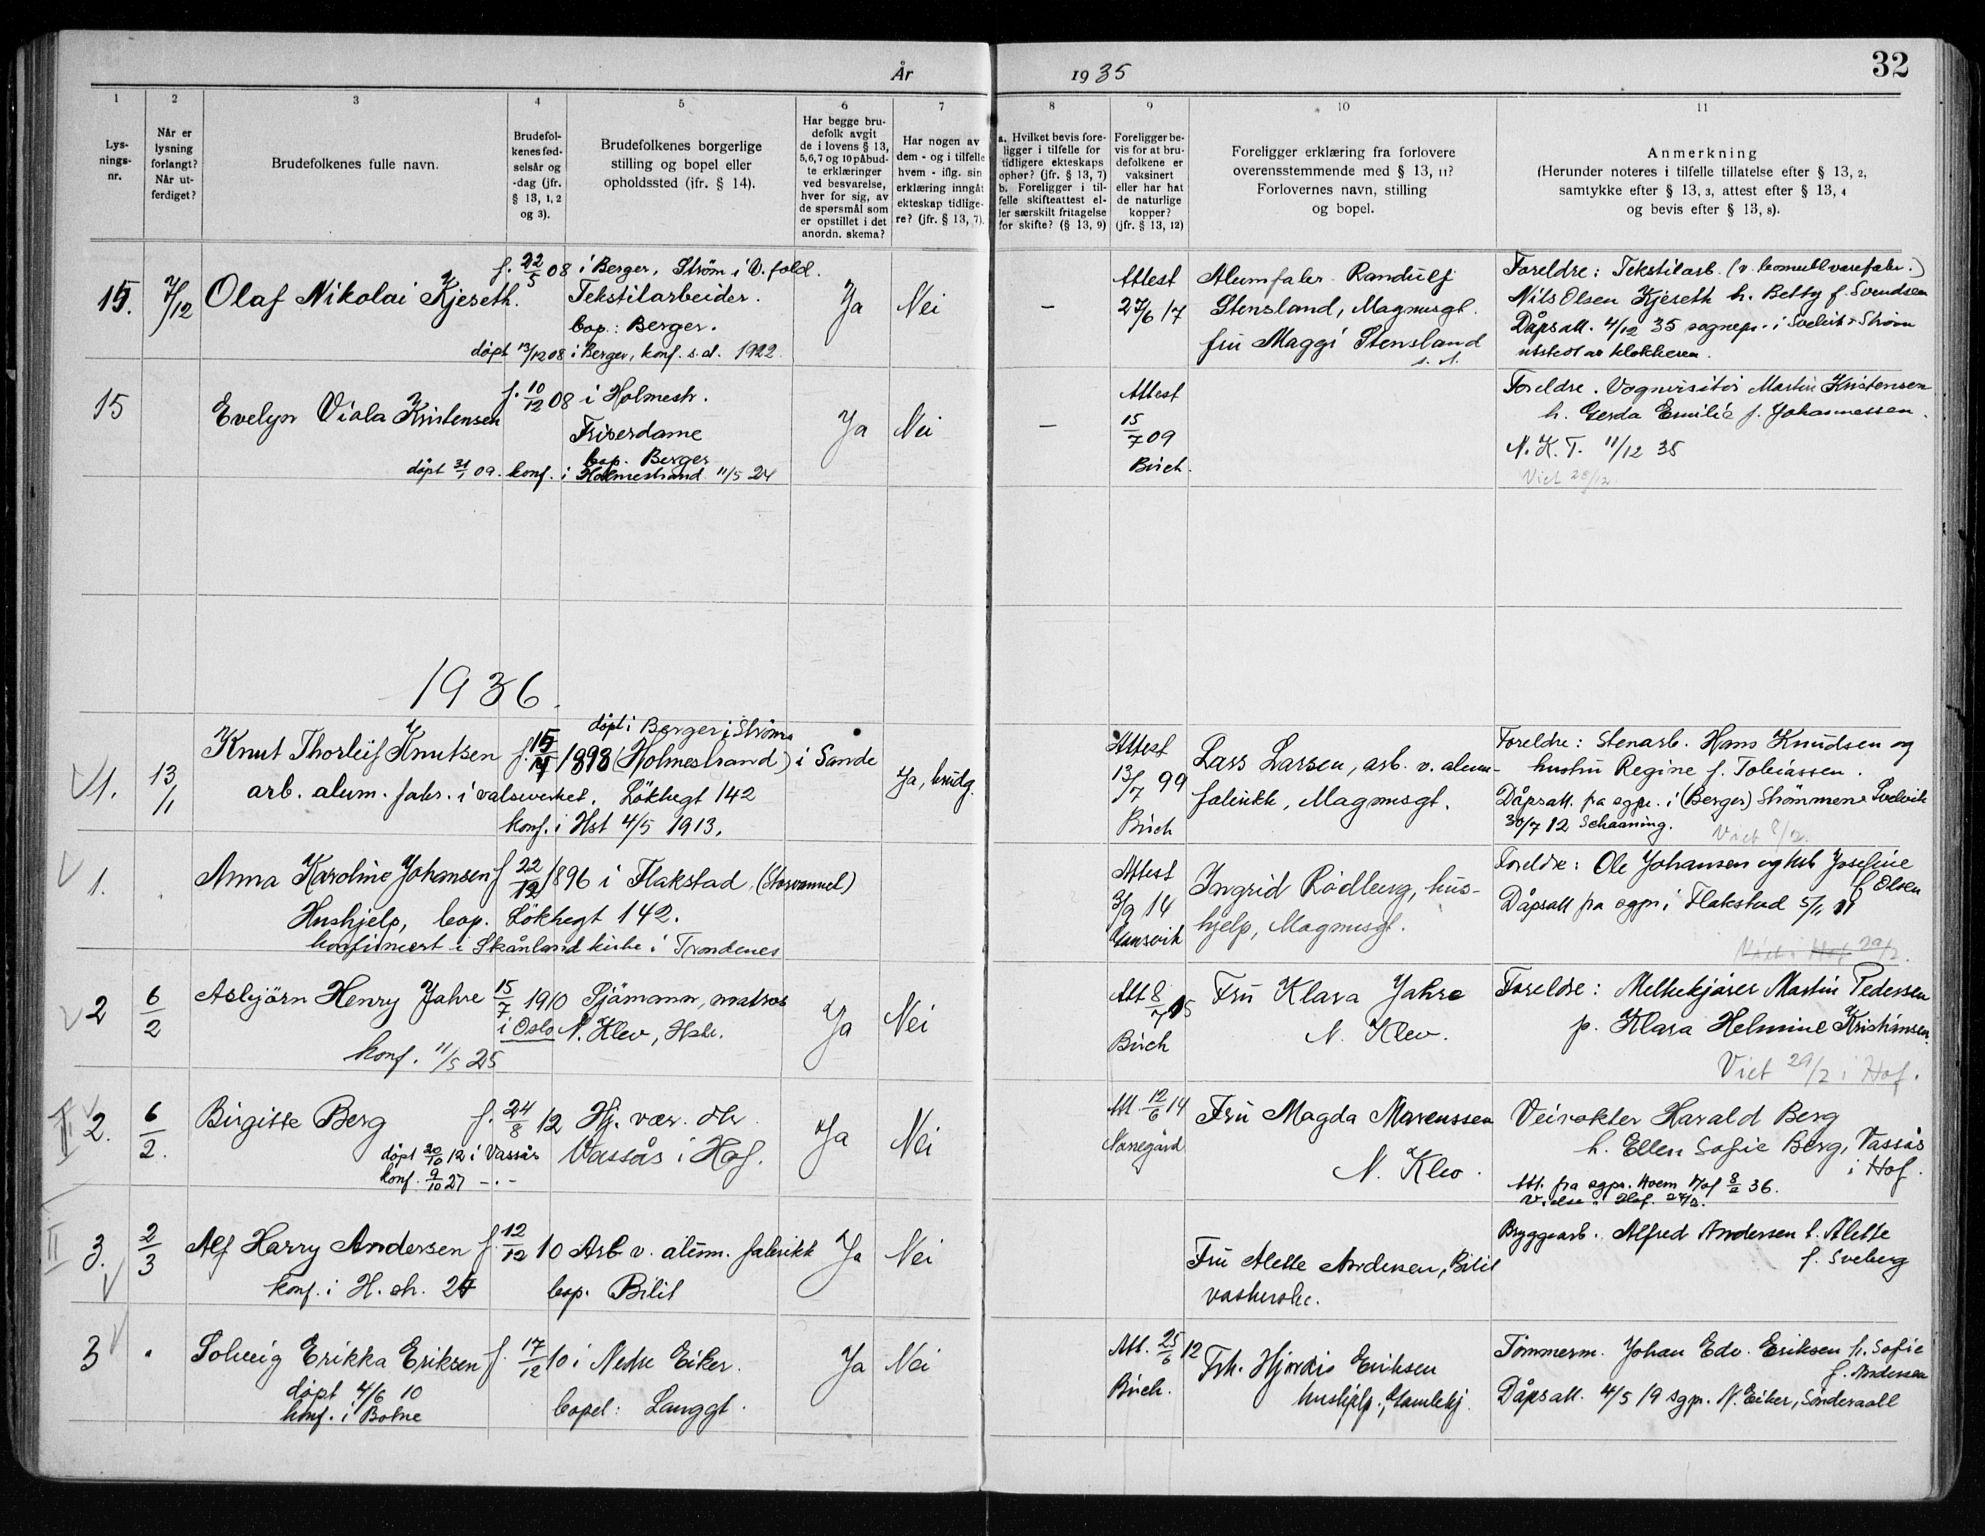 År 1935
32
1 2 3 4 5 6 7 8 9 10 11
Lys-
nings-
nr.
Når er
lysning
forlangt?
Når ut-
ferdiget?
Brudefolkenes fulle navn.
Brudefol-
kenes fød-
selsår og
-dag (jfr.
§ 13, 1, 2
og 3).
Brudefolkenes borgerlige
stilling og bopel eller
opholdssted (jfr. § 14).
Har begge bru-
defolk avgit
de i lovens § 13,
5,6,7 og 10 påbud-
te erklæringer
ved besvarelse,
hver for sig, av
de spørsmål som
er opstillet i det
anordn. skema?
Har nogen av
dem - og i tilfelle
hvem - iflg. sin
erklæring inngåt
ekteskap tidlige-
re? (jfr. § 13, 7).
a. Hvilket bevis fore-
ligger i tilfelle for
tidligere ekteskaps
ophør? (jfr. § 13, 7)
b. Foreligger i til-
felle skifteattest el-
ler særskilt fritagelse
for skifte? (§ 13, 9)
Foreligger be-
vis for at bru-
defolkene er
vaksinert
eller har hat
de naturlige
kopper?
(jfr. § 13, 12)
Foreligger erklæring fra forlovere
overensstemmende med § 13, 11?
Forlovernes navn, stilling
og bopel.
Anmerkning
(Herunder noteres i tilfelle tillatelse efter § 13, 2,
samtykke efter § 13, 3, attest efter § 13, 4
og bevis efter § 13, 8).
15. 7/12 Olaf Nikolai Kjeseth.
f. 22/5 08 i Berger, Strøm i V.fold.
Tekstilarbeider.
bop: Berger.
døpt 13/12 08 i Berger, konf. s.st. 1922
Ja Nei –
Attest
27/6 17
Alumfabr. Randulf
Stensland, Magnusgt.
fru Maggi Stensland
s. st.
Foreldre: Tekstilarb. (v. bomullvarefabr.)
Nils Olsen Kjeseth h. Betty f. Svendsen
Dåpsatt. 4/12 35 sognepr. i Svelvik-Strøm
utstedt av klokkeren.
15 Evelyn Viola Kristensen
f. 10/12 08 i Holmestr.
Friserdame
bop. Berger
døpt 31/1 09. konf. i Holmestrand 11/5 24
Ja Nei –
Attest
15/7 09
Birch.
Foreldre. Vognvisitør Martin Kristensen
h. Gerda Emilie f. Johannessen.
N. K. T. 11/12 35
Viet 28/12
1936.
1. 13/1 Knut Thorleif Knutsen
døpt i Berger i Strøm
f. 15/4 1898 (Holmestrand) i Sande
arb. alum. fabr. i valseverket. Løkkegt 142
konf. i Hst 4/5 1913.
Ja, brudg.
Attest
13/7 99
Birch
Lars Larsen, arb. v. alum-
fabrikk, Magnusgt.
Foreldre: Stenarb. Hans Knudsen og
hustru Regine f. Tobiassen.
Dåpsatt. fra sgpr. i (Berger) Strømmen Svelvik
30/7 12 Schaaning.
Viet 8/2.
1. Anna Karoline Johansen f. 22/12 1896 i Flakstad
Hushjelp, bop. Løkkegt 142.
konfirmert i Skånland kirke i Trondenes
Attest
3/9 14
Ingrid Rødberg, hus-
hjelp, Magnusgt.
Foreldre: Ole Johansen og hst Josefine
f. Olsen
Dåpsatt fra sgpr i Flakstad 5/1 11
Viet i Hof 29/2.
2 6/2 Asbjørn Henry Jahre 15/7 1910 Sjømann, matros
i Oslo N. Klev, Hstr.
konf. 11/5 25
Ja Nei
Att 8/7 15
Birch
Fru Klara Jahre
N. Klev.
Foreldre: Melkekjører Martin Pedersen
p. Klara Helmine Kristiansen.
Viet 29/2 i Hof.
2. 6/2. Birgitte Berg f. 24/8 12 Hj. vær.
døpt 20/10 12 i Vassås Vassås i Hof.
konf. 9/10 27 -.-
Ja Nei
Att. 12/6 14
Norregård
Fru Magda Marenssen
N. Klev.
Veivokter Harald Berg
h. Ellen Sofie Berg, Vassås
i Hof.
Att. fra sgpr. Hoem Hof 8/2 36.
Vielse i Hof. 29/2.
3. 2/3 Alf Harry Andersen f. 12/12 10 Arb v. alum. fabrikk
konf. i H. ch. 24 bop. Bilit
Ja Nei
Fru Alette Andersen, Bilit
vaskerske.
Bryggearb. Alfred Andersen h. Alette
f. Sveberg
3 " Solveig Erikka Eriksen f. 17/12 10 i Nedre Eiker.
døpt 4/6 10
konf. i Botne bopel: Langgt.
Ja Nei
Att. 25/6 12
Birch.
Frk. Hjørdis Eriksen
hushjelp, Gamlekj.
Tømmerm. Johan Edv. Eriksen h. Sofie
f. Andersen
Dåpsatt. 4/5 19 sgpr. N. Eiker, Sønderaall